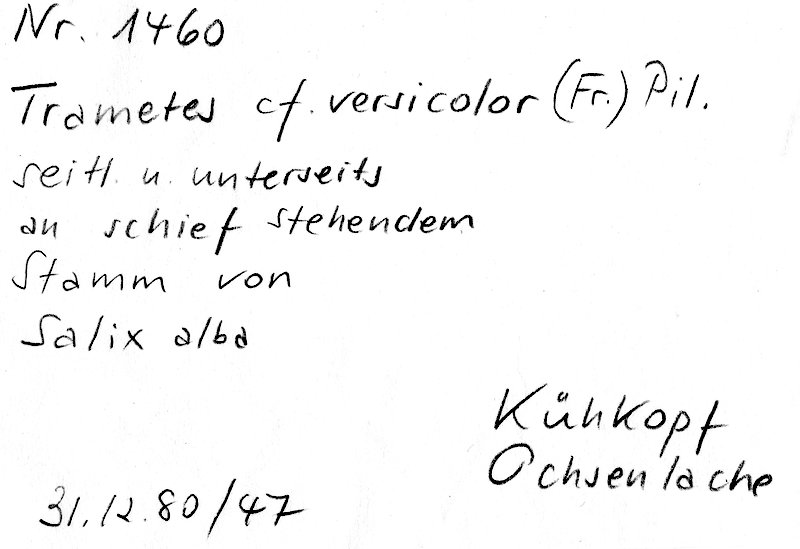 Nr. 1460
Trametes cf. versicolor (Fr.) Pil.
seitl. u. unterseits
an schief stehendem
Stamm von
Salix alba
Kühkopf
Ochsenlache
31.12.80/47